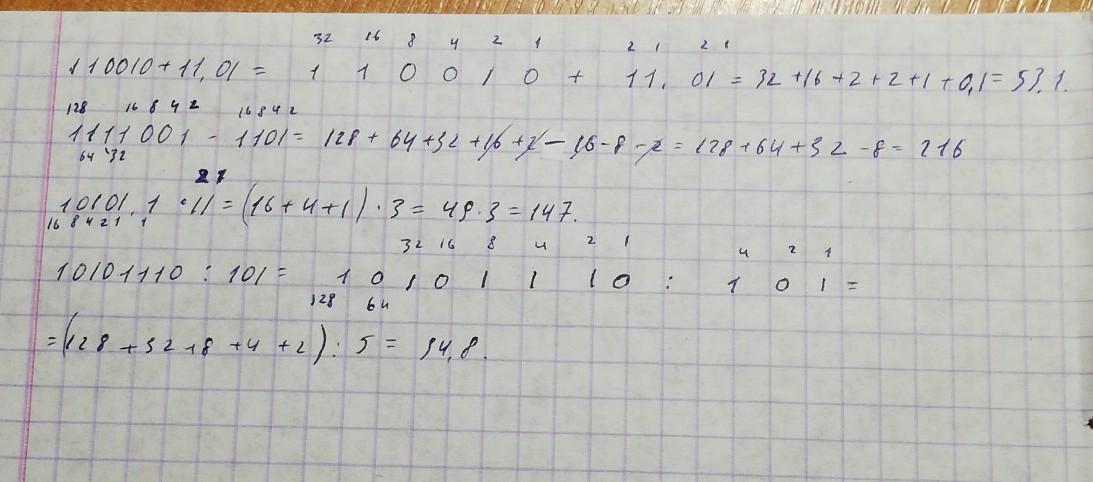 32 16 8 4 2 1 2 1 2 1
110010 + 11,01 = 1 1 0 0 1 0 + 11. 01 = 32 +16 +2 +2 +1 +0,1 = 53,1.
128 16 8 4 2 16 8 4 2
1111001 - 1101 = 128 + 64 +32 +16 +2 - 16 - 8 - 2 = 128 +64 +32 - 8 = 216
64 32
2 1
10101.1 · 11 = (16 +4 +1) · 3 = 49 · 3 = 147.
16 8 4 2 1 1
32 16 8 4 2 1 4 2 1
10101110 : 101 = 1 0 1 0 1 1 1 0 : 1 0 1 =
128 64
= (128 + 32 +8 +4 +2) : 5 = 34,8.